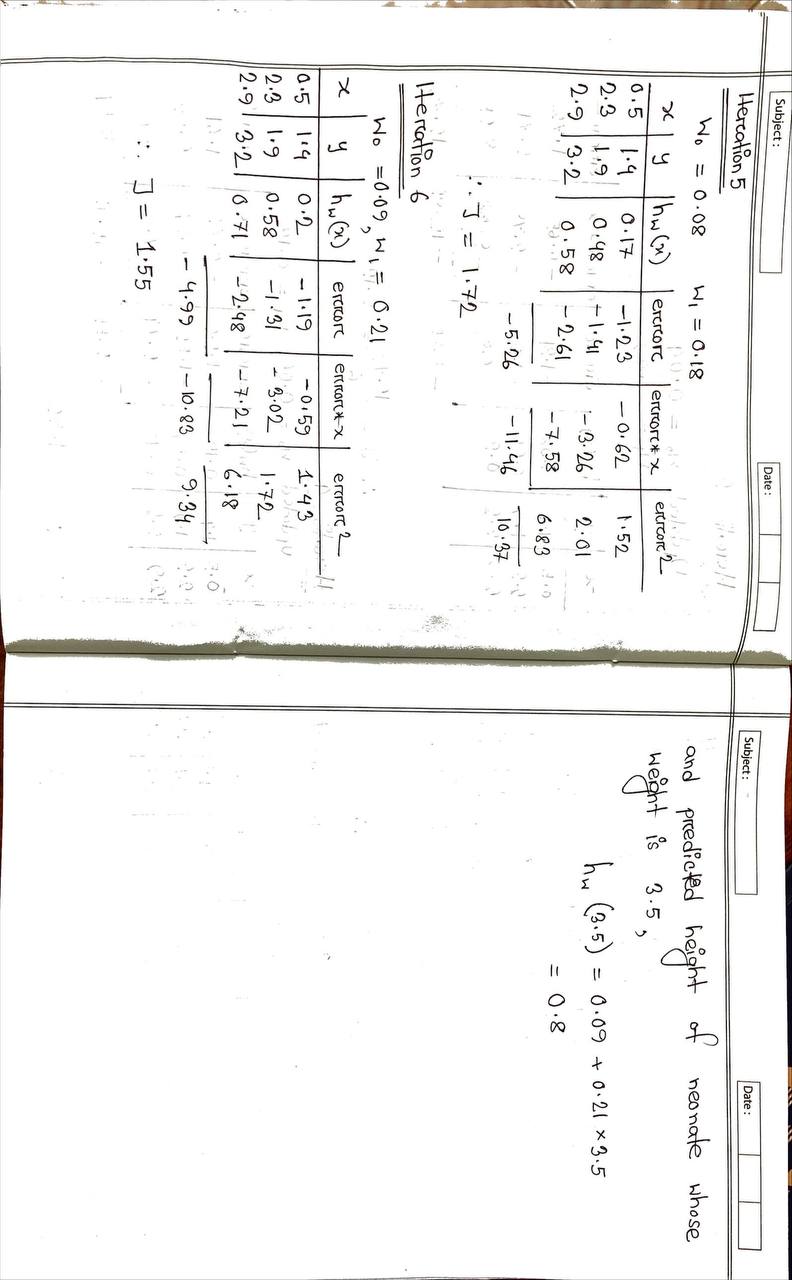 Subject:
Date:
Itercation 5
W₀ = 0.08 W₁ = 0.18
x y hw(x) ercrorc ercrorc*x ercrorc2
0.5 1.4 0.17 -1.23 -0.62 1.52
2.3 1.9 0.48 -1.41 -3.26 2.01
2.9 3.2 0.58 -2.61 -7.58 6.83
-5.26 -11.46 10.37
∴ J = 1.72
Itercation 6
W₀ = 0.09, W₁ = 0.21
x y hw(x) ercrorc ercrorc*x ercrorc2
0.5 1.4 0.2 -1.19 -0.59 1.43
2.3 1.9 0.58 -1.31 -3.02 1.72
2.9 3.2 0.71 -2.48 -7.21 6.18
-4.99 -10.83 9.34
∴ J = 1.55
Subject:
Date:
and prcedicted height of neonate whose
weight is 3.5,
hw (3.5) = 0.09 + 0.21 × 3.5
= 0.8